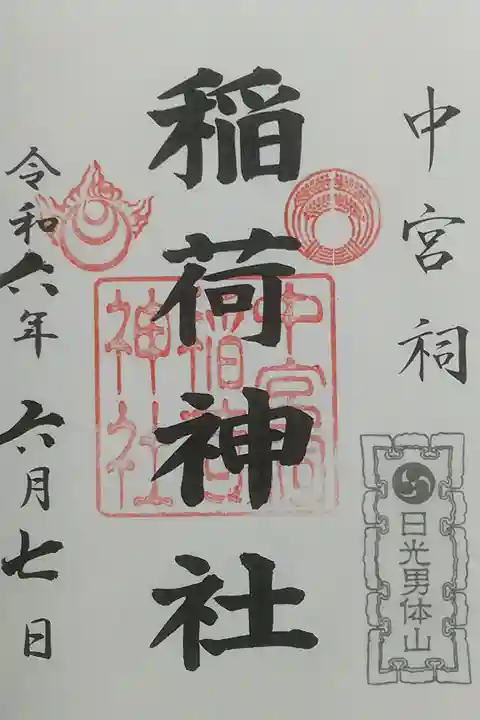 中宮祠
日光男体山
稲荷神社
中宮祠
稲荷
神社
令和六年 六月七日